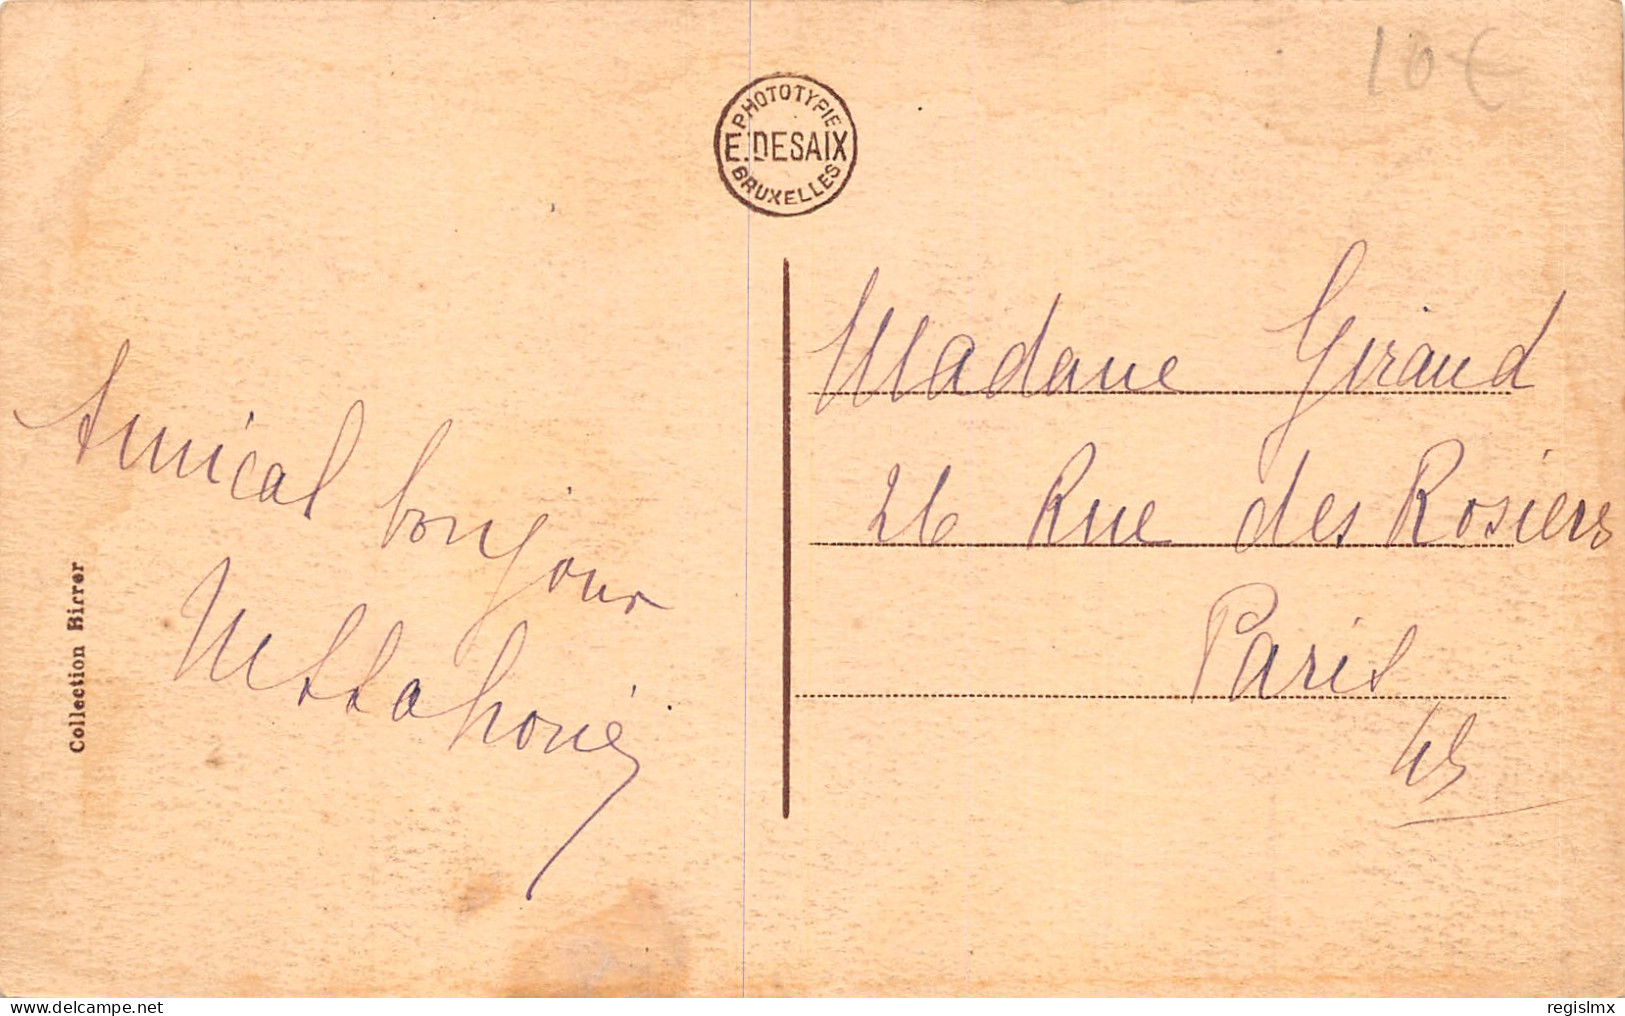 10€
PHOTOTYPIE
E. DESAIX
BRUXELLES
Amical bonjour
Madame Giraud
26 Rue des Rosiers
Paris
Collection Birrer
delcampe.net
regislmx